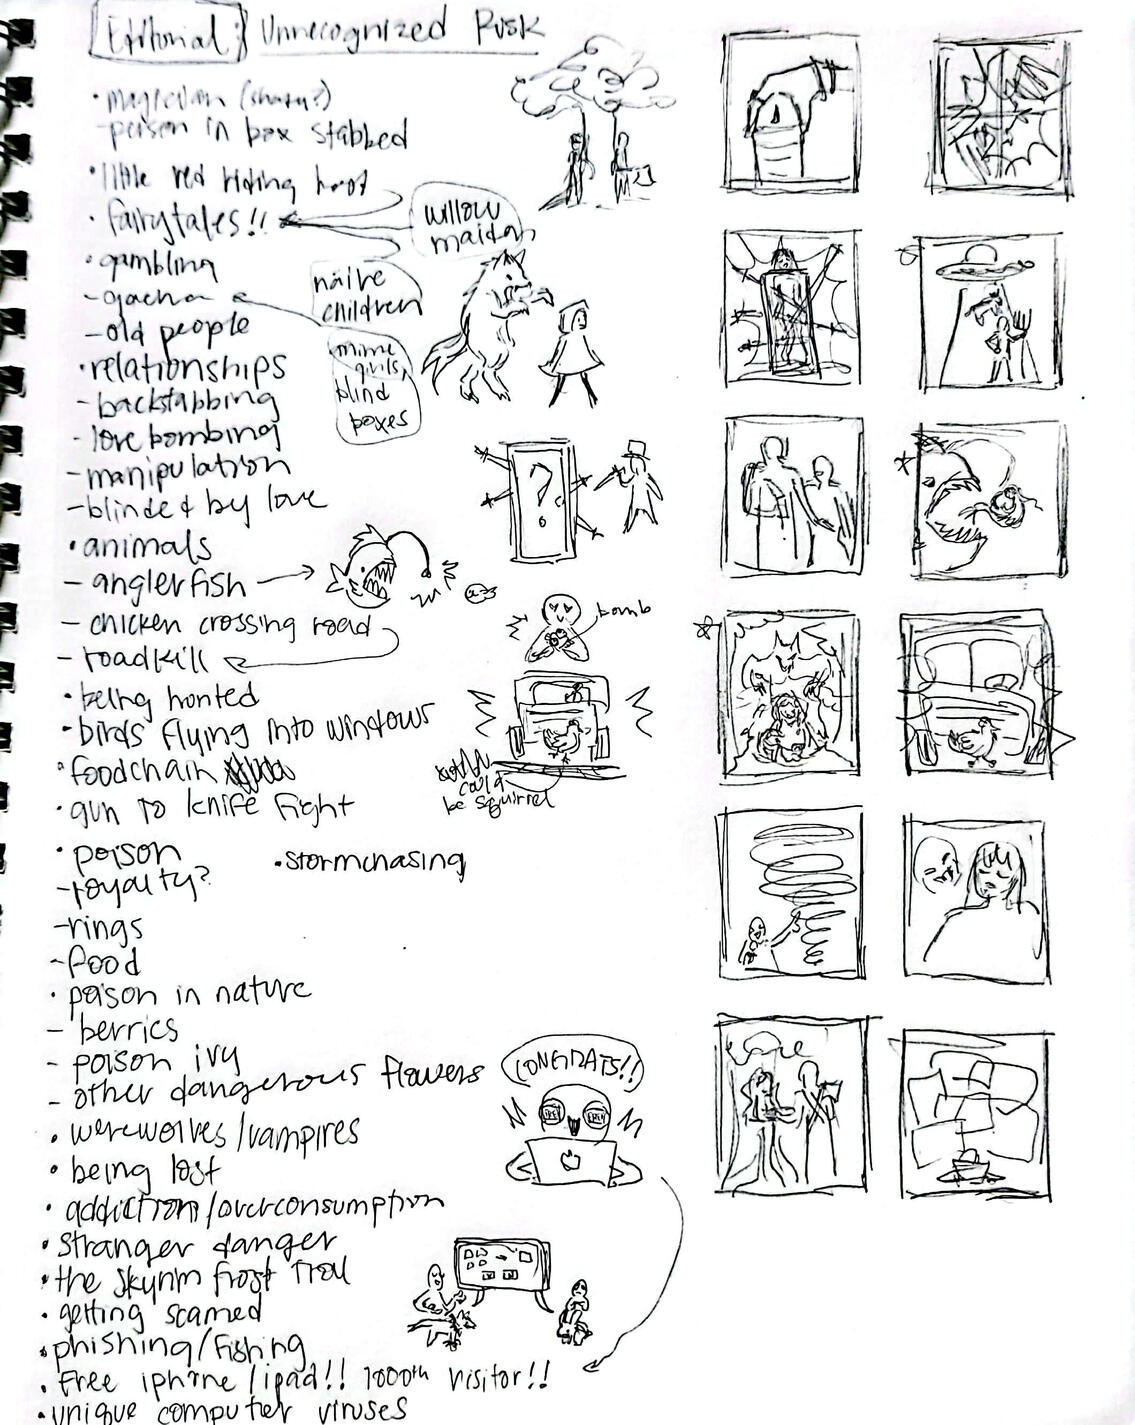 Editorial: Unrecognized Risk
• magician (shady?)
- person in box stabbed
• little red riding hood
• fairytales!!
willow
maiden
• gambling
- gacha
naive
children
- old people
• relationships
mime
girls,
blind
boxes
- backstabbing
- love bombing
- manipulation
- blinded by love
• animals
- anglerfish
- chicken crossing road
bomb
- roadkill
• being hunted
• birds flying into windows
• foodchain
could
be squirrel
• gun to knife fight
• poison
• stormchasing
- royalty?
- rings
- food
• poison in nature
- berries
- poison ivy
- other dangerous flowers
CONGRATS!!
• werewolves/vampires
• being lost
• addiction/overconsumption
• stranger danger
• the skyrim frost troll
• getting scamed
• phishing/fishing
• Free iphone/ipad!! 1000th visitor!!
• unique computer viruses